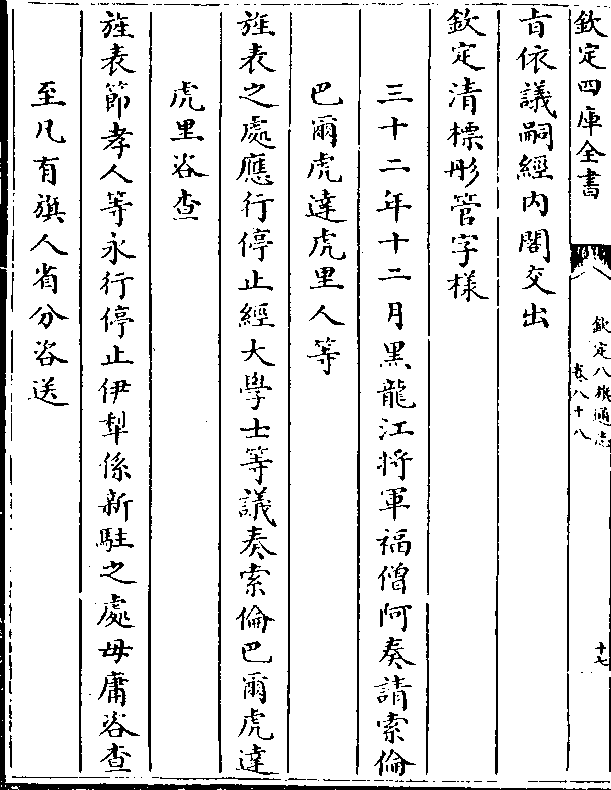 欽定四庫全書
欽定八旗通志
卷八十八
十七
旨依議嗣經内閣交出
欽定清標彤管字様
三十二年十二月黑龍江將軍福僧阿奏請索倫
巴爾虎達虎里人等
旌表之處應行停止經大學士等議奏索倫巴爾虎達
虎里咨查
旌表節孝人等永行停止伊犁係新駐之處毋庸咨查
至凡有旗人省分咨送